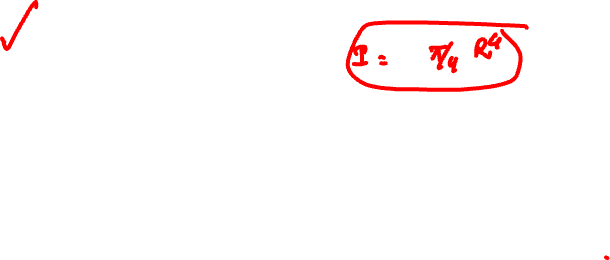 I = π/4 R⁴